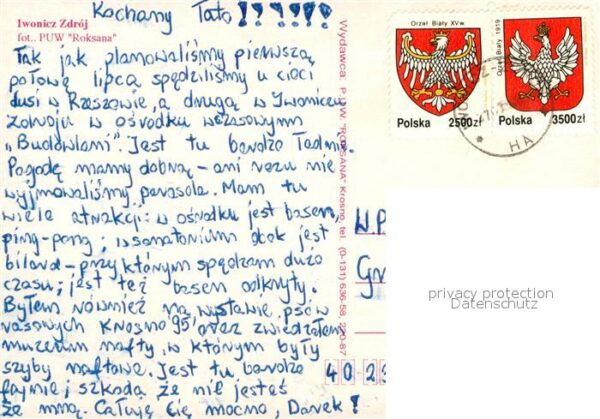 Kochany Tato!!!!!!
Iwonicz Zdrój
fot.. PUW "Roksana"
Tak jak planowaliśmy pierwszą
połowę lipca spędziliśmy u cioci
Lusi w Rzeszowie, a drugą w Iwoniczu
Zdroju w ośrodku wczasowym
„Budowlani". Jest tu bardzo ładnie.
Pogodę mamy dobrą - ani razu nie
wyjmowaliśmy parasola. Mam tu
wiele atrakcji: w ośrodku jest basen,
ping-pong; w sanatorium obok jest
bilard - przy którym spędzam dużo
czasu; jest też basen odkryty.
Byłem również na wystawie psów
rasowych Krosno 95' oraz zwiedzałem
muzeum nafty, w którym były
szyby naftowe. Jest tu bardzo
fajnie; szkoda że nie jesteś
ze mną. Całuję Cię mocno, Darek!
Wydawca P.U.W. "ROKSANA" Krosno, tel. (0-131) 636-58, 220-87
Orzeł Biały XVw.
Polska 2500zł
Orzeł Biały 1919
Polska 3500zł
HA
W.P
privacy protection
Datenschutz
40 2